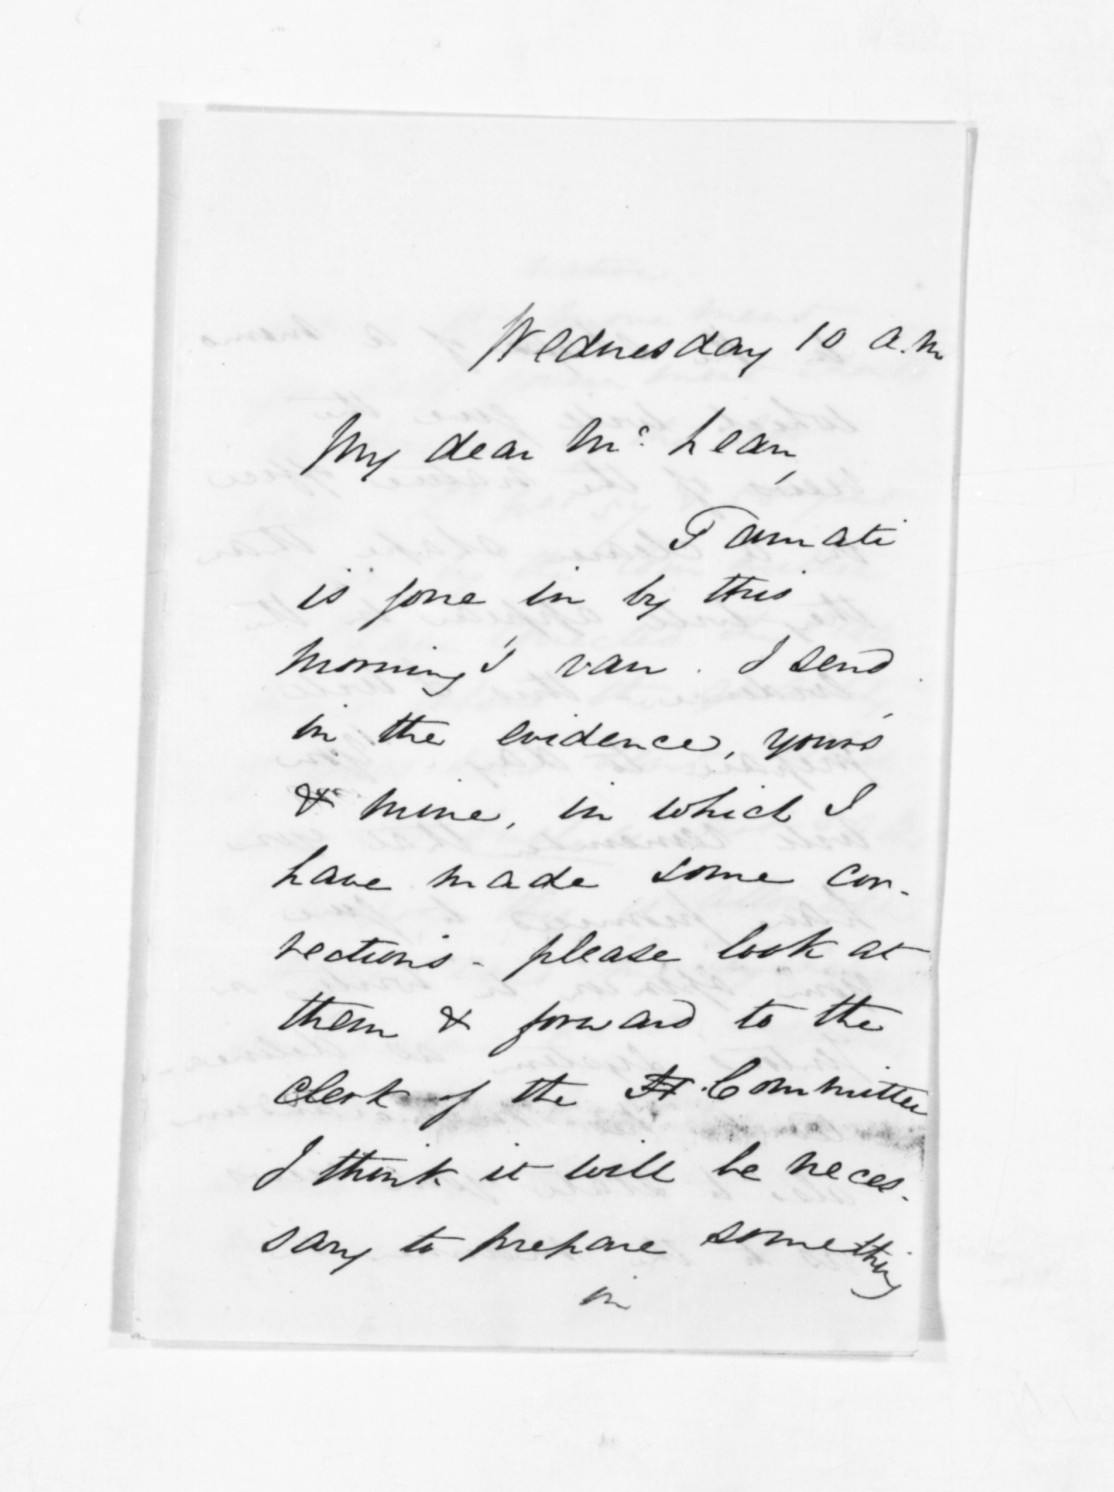 Wednesday 10 a.m
My dear Mc. Lean,
Tamati
is gone in by this
morning's van. I send
in the evidence, yours
& mine, in which I
have made some cor-
rections - please look at
them & forward to the
clerk of the Committee
I think it will be neces-
sary to prepare something
in